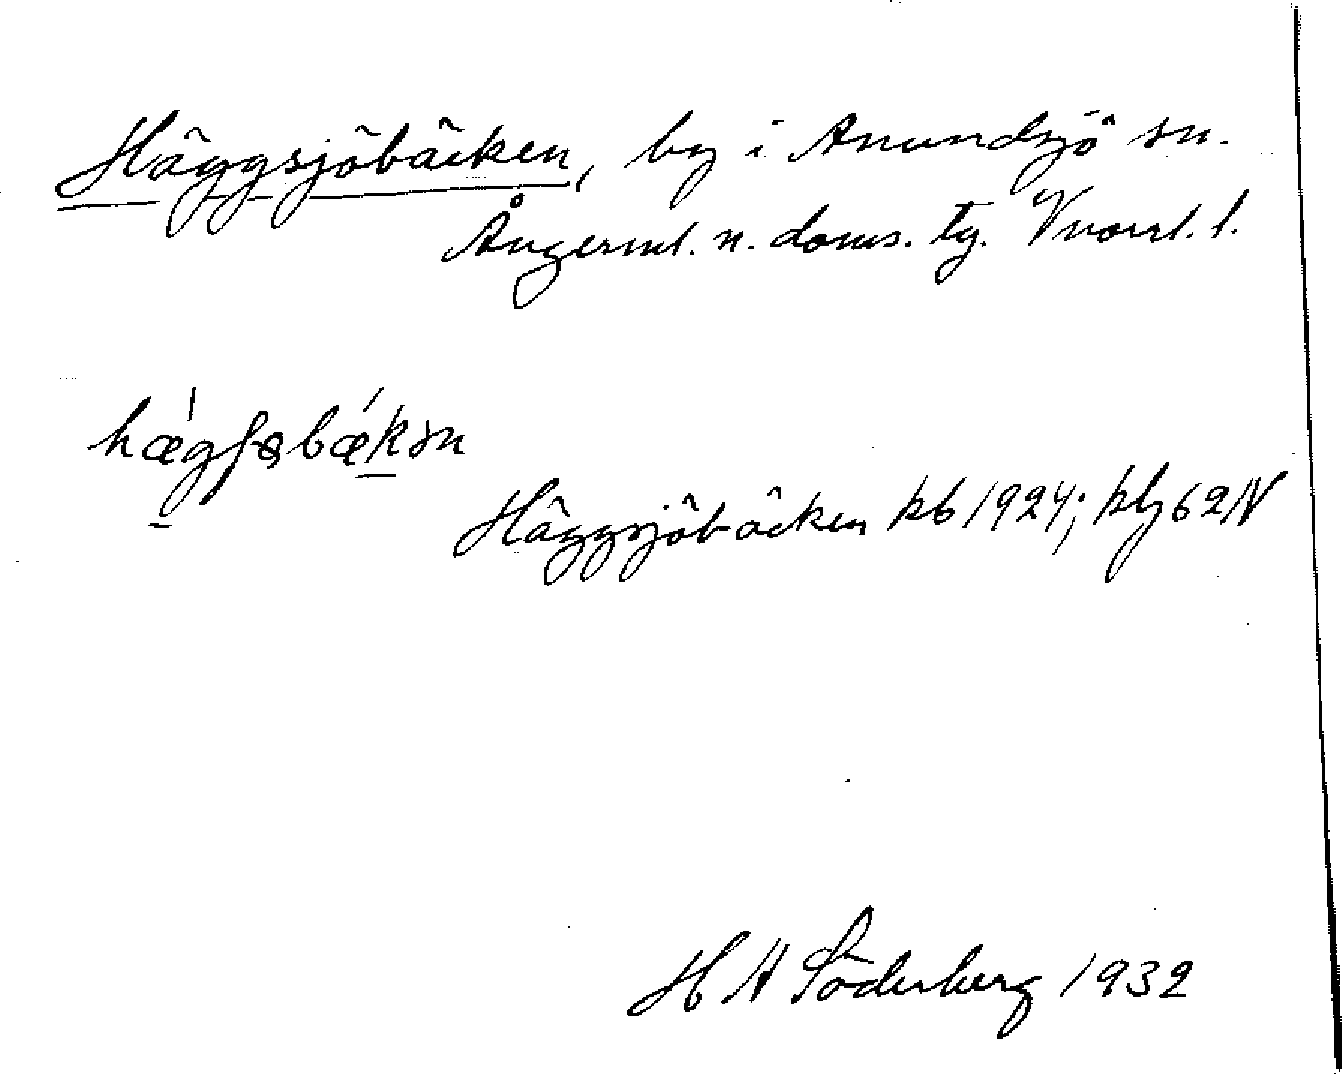 Häggsjöbäcken, by i Anundsjö sn.
Ångerml. n. doms. tg. Vnorrl. l.
hǽgʃøbǽkən
Häggsjöbäcken kb 1924; kbl 62 N
H A Söderberg 1932